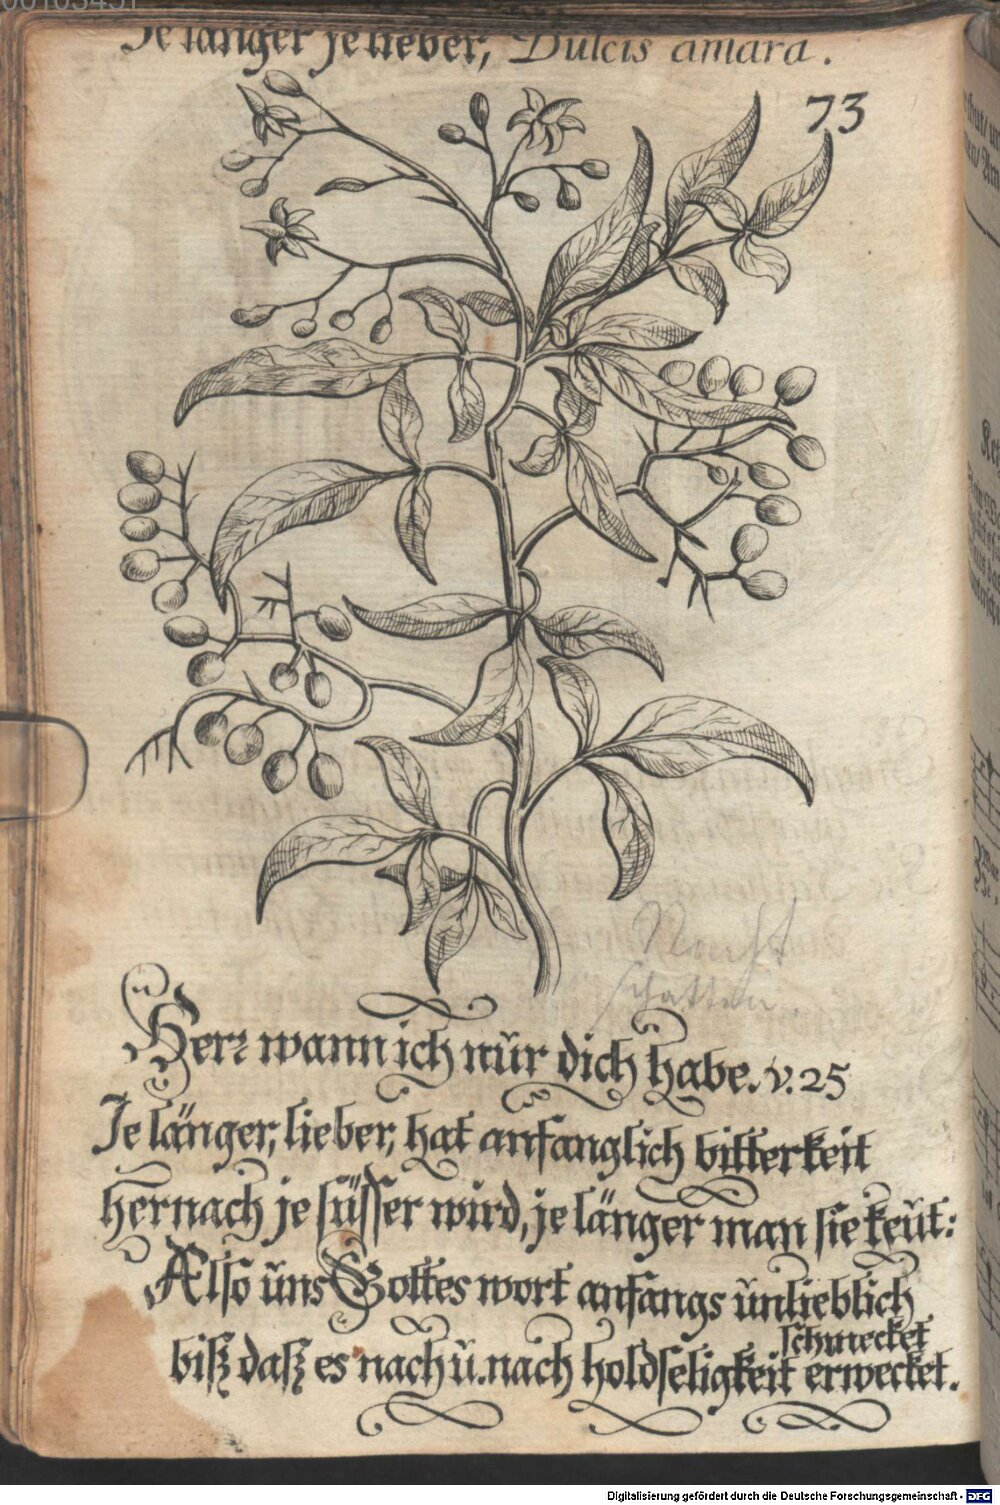 Je länger je lieber, Dulcis amara.
73
Nacht
schatten
Herz wann ich nůr dich habe. v. 25
Je länger, lieber, hat anfanglich bitterkeit
hernach je süsser wird, je länger man sie keůt:
Also ůns Gottes wort anfangs ůnlieblich
schmecket
biß daß es nach ů. nach holdseligkeit erwecket.
Digitalisierung gefördert durch die Deutsche Forschungsgemeinschaft - DFG